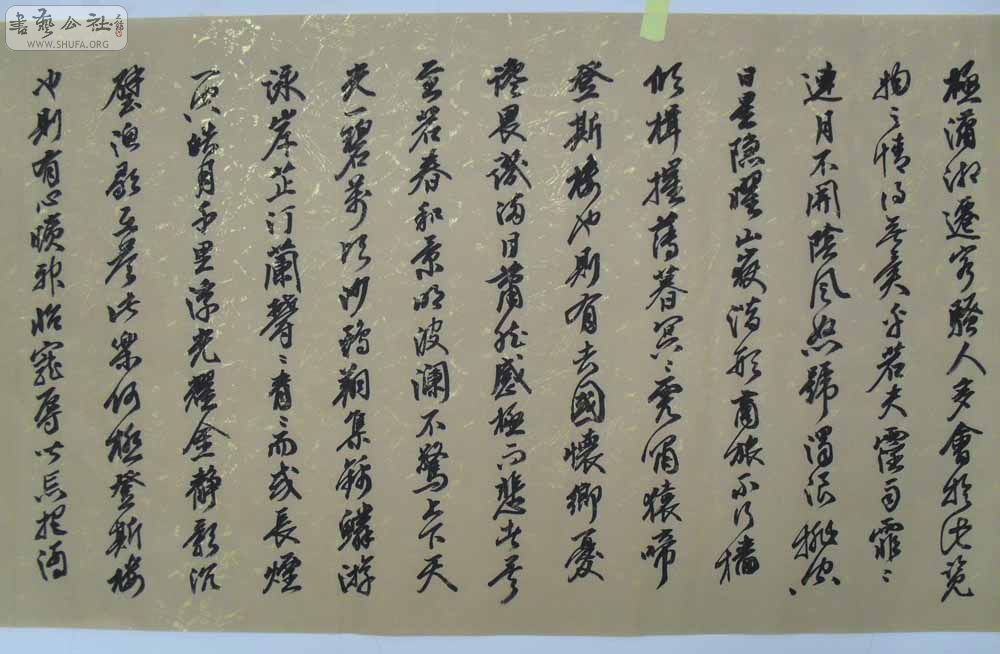 書藝公社
WWW.SHUFA.ORG
極瀟湘遷客騷人多會於此覽
物之情得無異乎若夫霪雨霏〻
連月不開陰風怒號濁浪排空、
日星隱曜山嶽潛形商旅不行檣
傾楫摧薄暮冥〻虎嘯猿啼
登斯樓也則有去國懷鄉憂
讒畏譏滿目蕭然感極而悲者矣
至若春和景明波瀾不驚上下天
光一碧萬頃沙鷗翔集錦鱗游
泳岸芷汀蘭鬱〻青〻而或長煙
一空皓月千里浮光耀金靜影沉
璧漁歌互答此樂何極登斯樓
也則有心曠神怡寵辱皆忘把酒